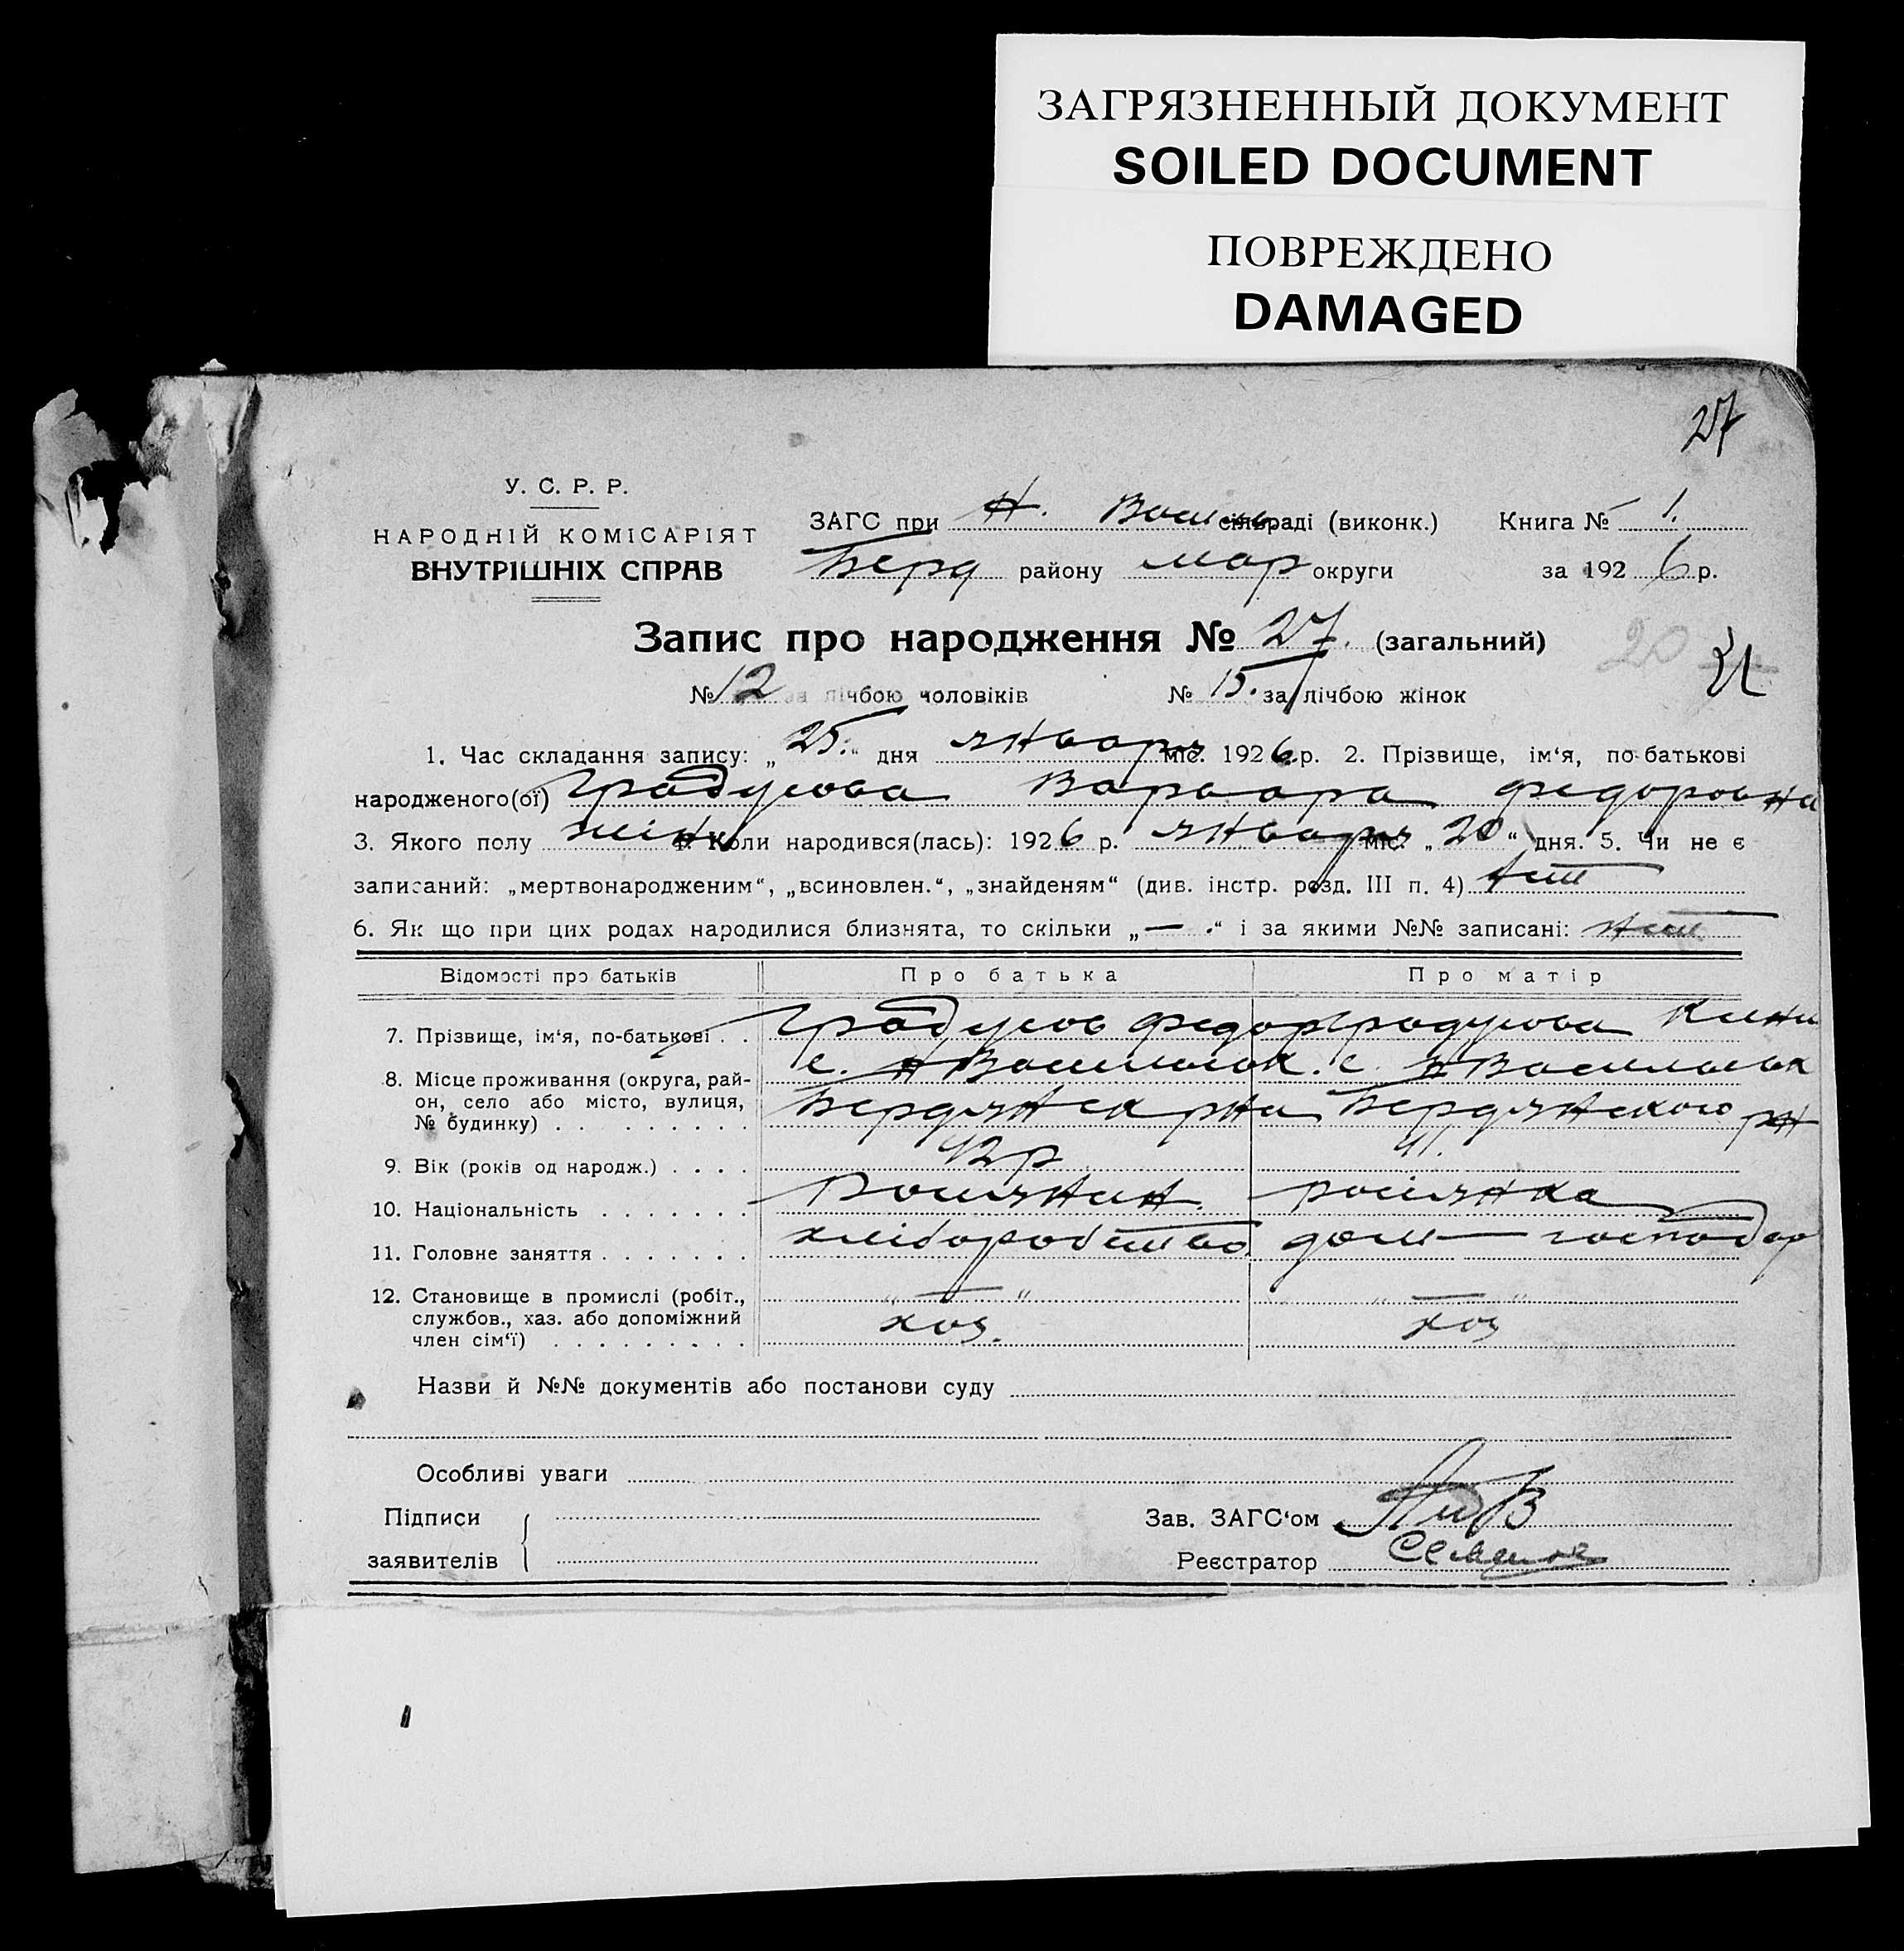 ЗАГРЯЗНЕННЫЙ ДОКУМЕНТ
SOILED DOCUMENT
ПОВРЕЖДЕНО
DAMAGED
27
У. С. Р. Р.
НАРОДНІЙ КОМІСАРІЯТ
ВНУТРІШНІХ СПРАВ
ЗАГС при Н. сільраді (виконк.) Книга № 1.
Берд району мар округи за 1926 р.
Запис про народження № 27. (загальний) 20
№ 12 за лічбою чоловіків № 15. за лічбою жінок
1. Час складання запису: „25.“ дня января міс. 1926 р. 2. Прізвище, ім‘я, по-батькові
народженого(ої) Градусова Варвара Федоровна
3. Якого полу жін 4. Коли народився(лась): 1926 р. января міс. „20“ дня. 5. Чи не є
записаний: „мертвонародженим“, „всиновлен.“, „знайденям“ (див. інстр. розд. III п. 4) нит
6. Як що при цих родах народилися близнята, то скільки „— .“ і за якими №№ записані: нит
Відомості про батьків Про батька Про матір
7. Прізвище, ім‘я, по-батькові . . Градусов Федор Градусова
8. Місце проживання (округа, рай-
он, село або місто, вулиця,
№ будинку) . . . . . . . . .
с. Н Васильовк. с. Н Васильевк
Бердянск рна Бердянского рн
9. Вік (років од народж.) . . . . 42 р 41.
10. Національність . . . . . . . Росиянин. росіянка
11. Головне заняття . . . . . . . хліборобство дом — господар
12. Становище в промислі (робіт.,
службов., хаз. або допоміжний
член сім‘ї) . . . . . . . . .
„ — “ „ — “
хоз. хоз
Назви й №№ документів або постанови суду
Особливі уваги
Підписи
заявителів
Зав. ЗАГС‘ом
Реєстратор